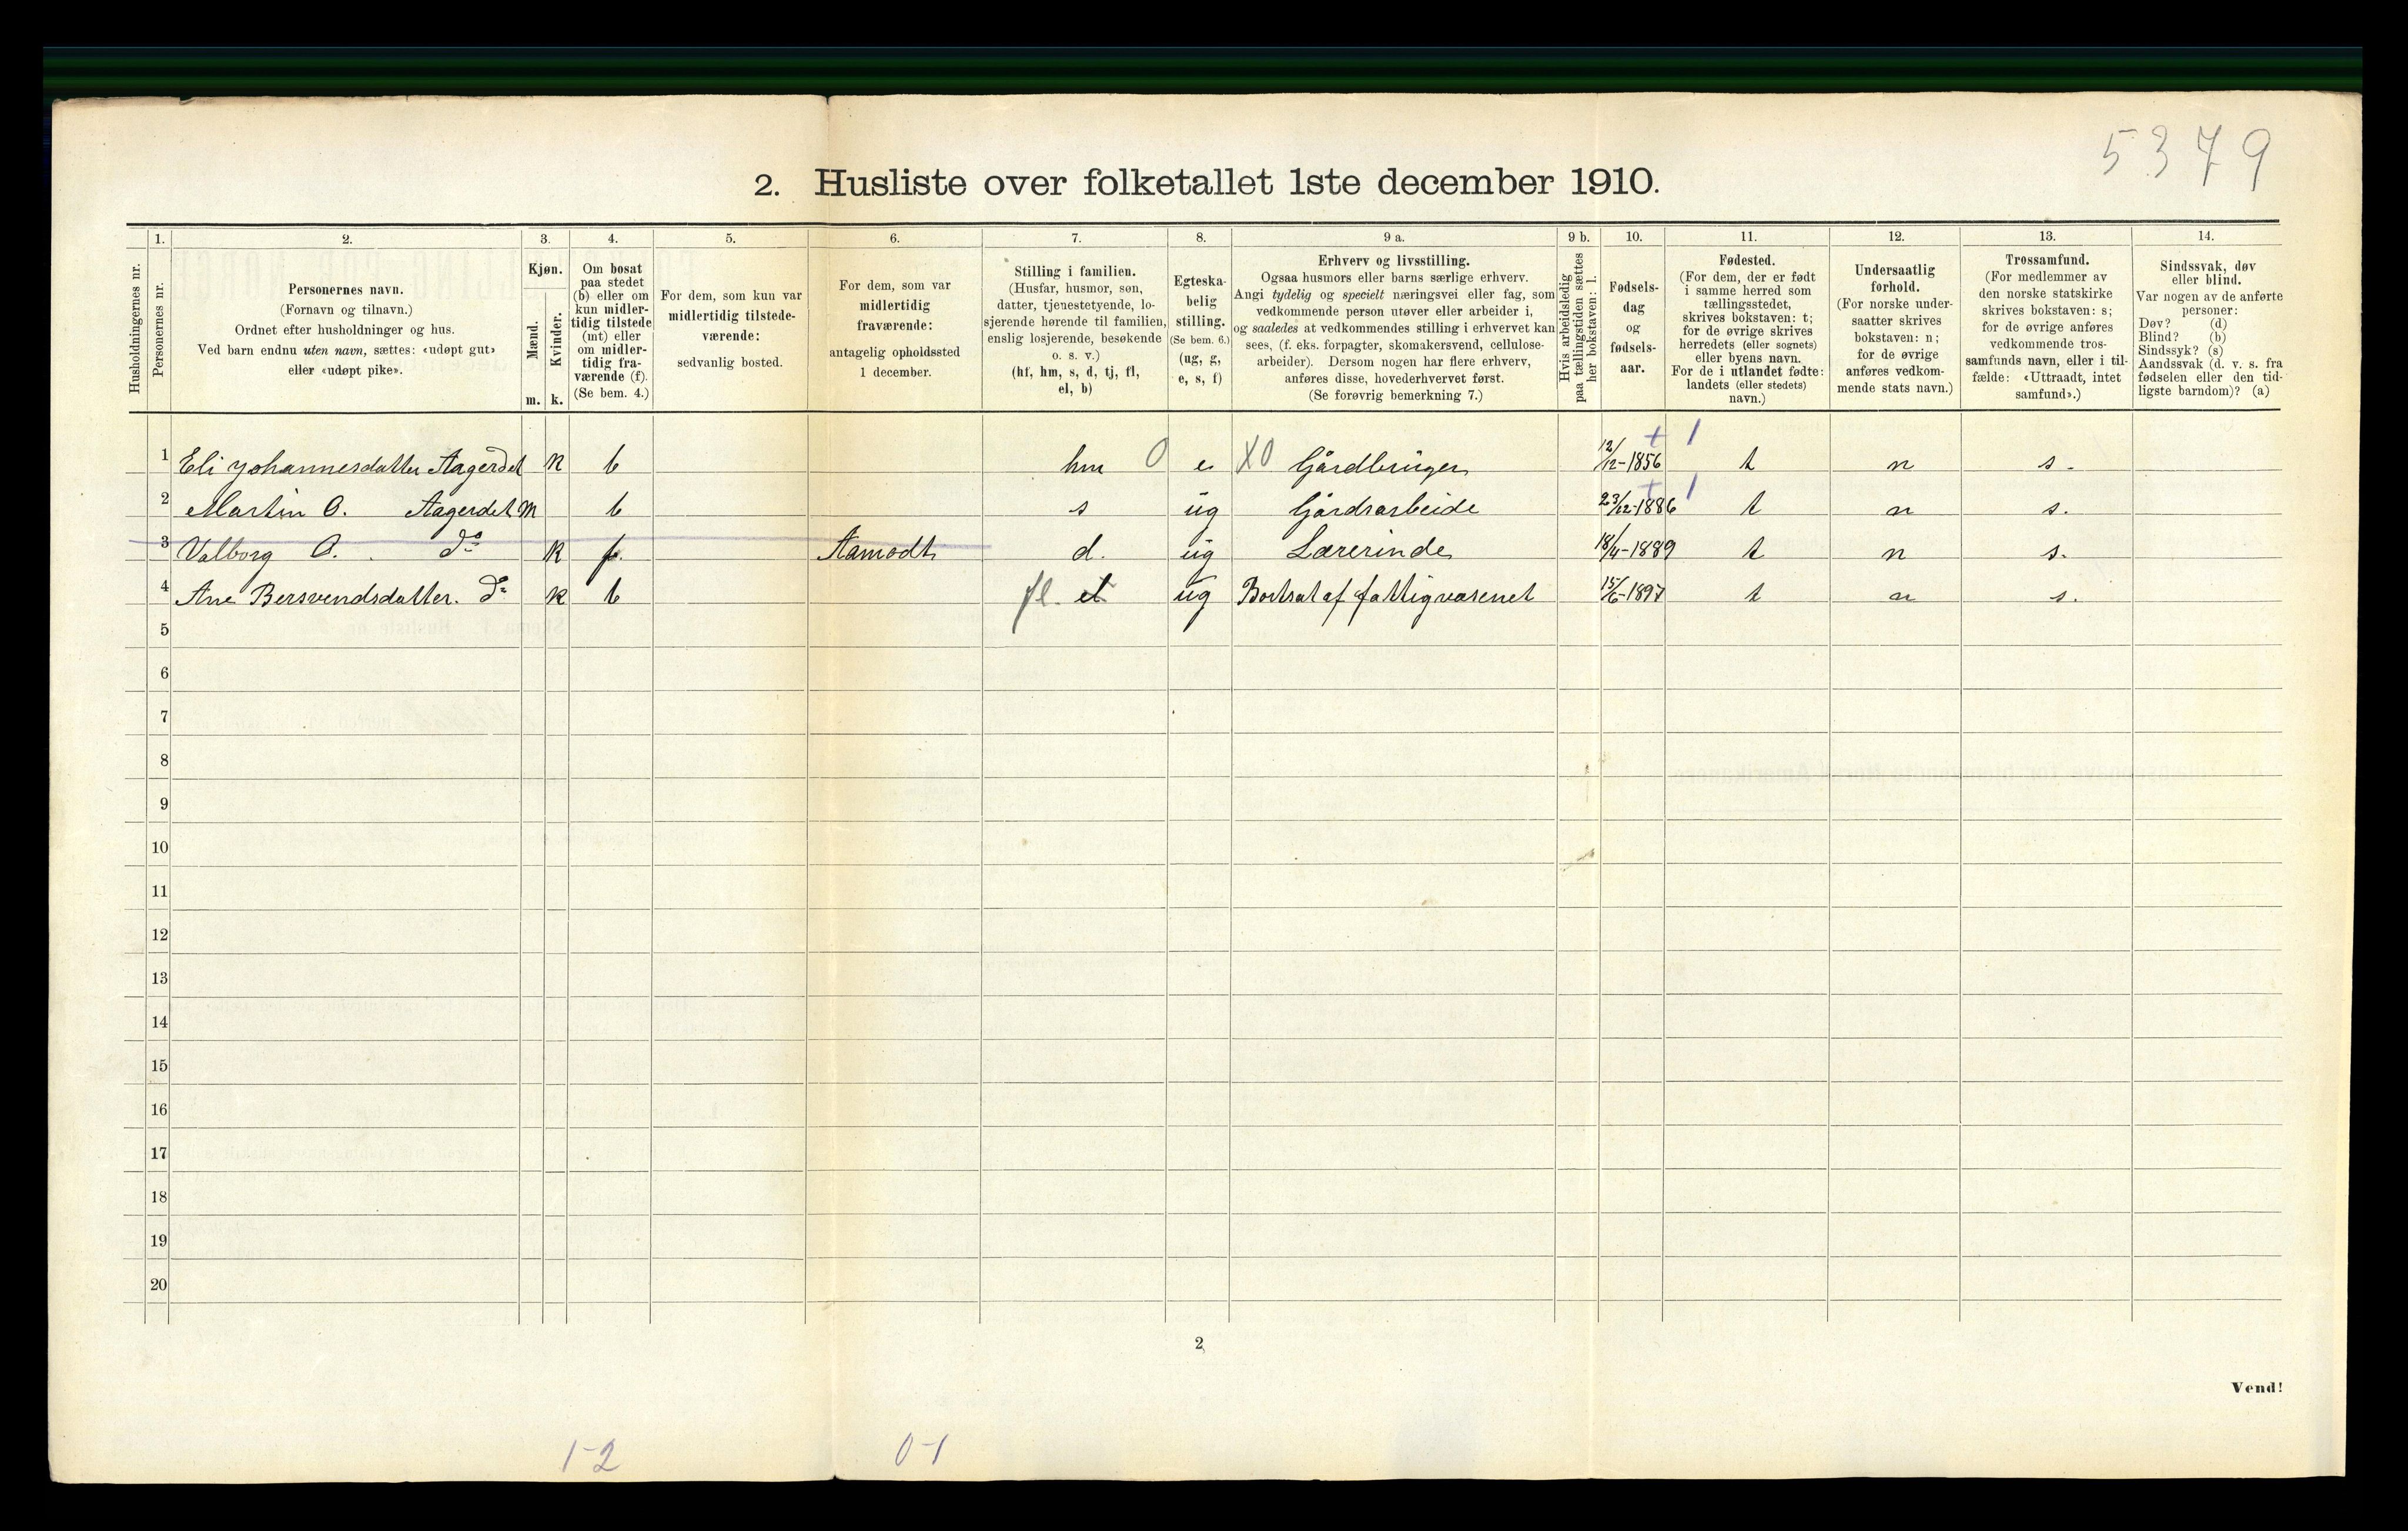 5379
2. Husliste over folketallet 1ste december 1910.
Husholdningernes nr.
1.
Personernes nr.
2.
Personernes navn.
(Fornavn og tilnavn.)
Ordnet efter husholdninger og hus.
Ved barn endnu uten navn, sættes: «udøpt gut»
eller «udøpt pike».
3.
Kjøn.
Mænd.
m.
Kvinder.
k.
4.
Om bosat
paa stedet
(b) eller om
kun midler-
tidig tilstede
(mt) eller
om midler-
tidig fra-
værende (f).
(Se bem. 4.)
5.
For dem, som kun var
midlertidig tilstede-
værende:
sedvanlig bosted.
6.
For dem, som var
midlertidig
fraværende:
antagelig opholdssted
1 december.
7.
Stilling i familien.
(Husfar, husmor, søn,
datter, tjenestetyende, lo-
sjerende hørende til familien,
enslig losjerende, besøkende
o. s. v.)
(hf, hm, s, d, tj, fl,
el, b)
8.
Egteska-
belig
stilling.
(Se bem. 6.)
(ug, g,
e, s, f)
9 a.
Erhverv og livsstilling.
Ogsaa husmors eller barns særlige erhverv.
Angi tydelig og specielt næringsvei eller fag, som
vedkommende person utøver eller arbeider i,
og saaledes at vedkommendes stilling i erhvervet kan
sees, (f. eks. forpagter, skomakersvend, cellulose-
arbeider). Dersom nogen har flere erhverv,
anføres disse, hovederhvervet først.
(Se forøvrig bemerkning 7.)
9 b.
Hvis arbeidsledig
paa tællingstiden sættes
her bokstaven: l.
10.
Fødsels-
dag
og
fødsels-
aar.
11.
Fødested.
(For dem, der er født
i samme herred som
tællingsstedet,
skrives bokstaven: t;
for de øvrige skrives
herredets (eller sognets)
eller byens navn.
For de i utlandet fødte:
landets (eller stedets)
navn.)
12.
Undersaatlig
forhold.
(For norske under-
saatter skrives
bokstaven: n;
for de øvrige
anføres vedkom-
mende stats navn.)
13.
Trossamfund.
(For medlemmer av
den norske statskirke
skrives bokstaven: s;
for de øvrige anføres
vedkommende tros-
samfunds navn, eller i til-
fælde: «Uttraadt, intet
samfund».)
14.
Sindssvak, døv
eller blind.
Var nogen av de anførte
personer:
Døv? (d)
Blind? (b)
Sindssyk? (s)
Aandssvak (d. v. s. fra
fødselen eller den tid-
ligste barndom)? (a)
1 Eli Johannesdatter Aagerdet k b hm 0 e X0 Gårdbruger 12/12-1856 + 1 t n s.
2 Martin O. Aagerdet m b s ug Gårdsarbeide 23/12-1886 + 1 t n s.
3 Valborg O. do k f. Aamodt d. ug Lærerinde 18/4-1889 t n s.
4 Ane Bersvendsdatter. do k b fl. el ug Bortsat af fattigvæsenet 15/6-1897 t n s.
5
6
7
8
9
10
11
12
13
14
15
16
17
18
19
20
2
Vend!
1-2 0-1